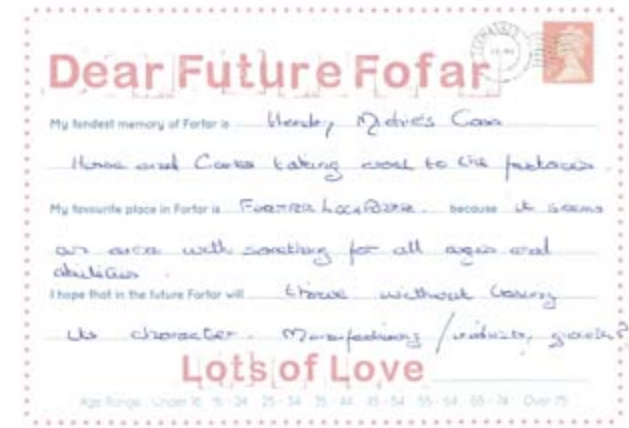 Dear Future Fofar
My fondest memory of Forfar is
Horse and Carts taking coal to the factories.
My favourite place in Forfar is Forfar Loch because it seems
an area with something for all ages and
abilities.
I hope that in the future Forfar will thrive without losing
its character. Manufacturing / industry, growth?
Lots of Love
Age Range : Under 16 16 - 24 25 - 34 35 - 44 45 - 54 55 - 64 65 - 74 Over 75